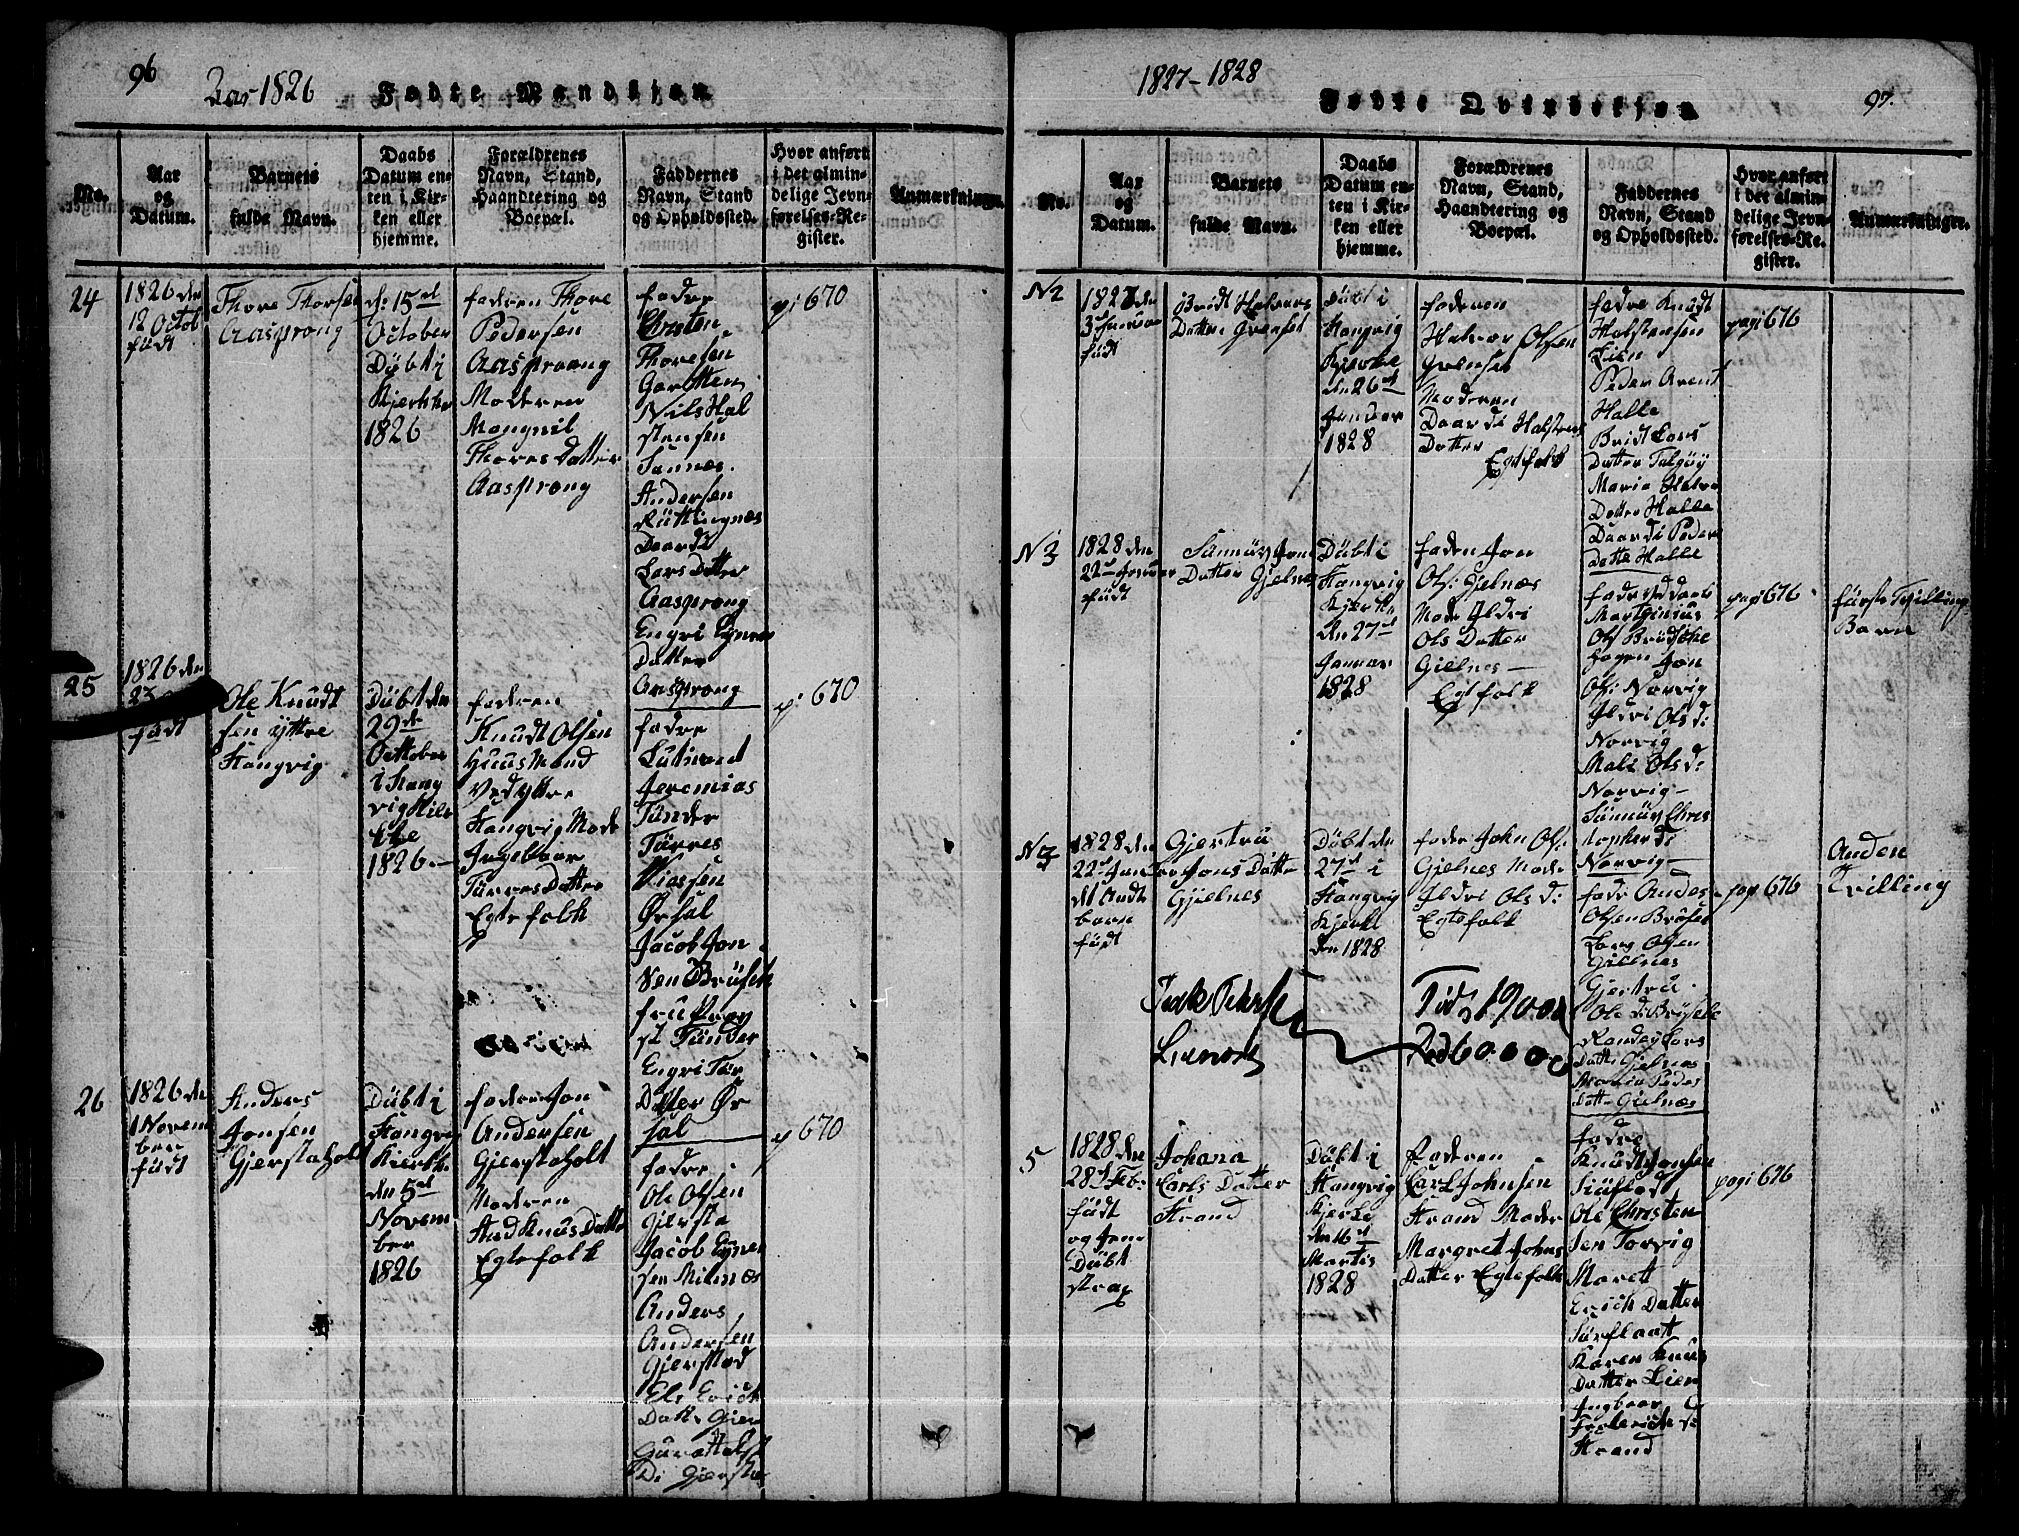 96
Aar 1826
Fødte Mandkjøn
No.
Aar
og
Datum.
Barnets
fulde Navn.
Daabs
Datum en-
ten i Kir-
ken eller
hjemme.
Forældrenes
Navn, Stand,
Haandtering og
Boepæl.
Faddernes
Navn, Stand
og Opholdssted.
Hvor anført
i det almin-
delige Jevn-
førelses-Re-
gister.
Anmærkninger.
24
1826 den
12 Octob
födt
Thore Thorsen
Aasprong
d: 15de
October
Döbt i
Kjerkke
1826
fadren Thore
Pedersen
Aasprong
Moderen
Mangnil
Thores Datter
Aasprong
fadre
Christen
Thoresen
Nils Hal
stensen
Sannæs
Andersen
Rüttingnæs
Daardi
Lars Datter
Aasprong
Engri
Datter
Aasprong
pi 670
25
1826 den
23
födt
Ole Knudt
sen yttre
Stangvig
Döbt den
29de
Octtober
i Stang
vig
1826
fadren
Knudt Olsen
Huusmand
Ved yttre
Stangvig Mode
Ingebaar
Törres Datter
Egtefolk
fadre
Lutinant
Jeremias
Tönder
Törres
Ørsal
Jacob Jon
sen Brüset
fru
Tönder
Engri Tör
Datter Ør
sal
pi 670
26
1826 den
1 Novem
ber
födt
Anders
Jonsen
Gjerstaholt
Döbt i
Stangvig
Kierkke
den 5de
Novem
ber
1826
fadren Jon
Andersen
Gjerstaholt
Moderen
And Knus Datter
Egtefolk
fadre
Ole Olsen
Gjersta
Jacob
sen Milnæs
Anders
Andersen
Gjerstad
Eli Erich
Datter Gjer
Di Gjersta
pi 670
1827-1828
Fødte Qvindekjøn
97.
No.
Aar
og
Datum.
Barnets
fulde Navn.
Daabs
Datum en-
ten i Kir-
ken eller
hjemme.
Forældrenes
Navn, Stand,
Haandtering og
Boepæl.
Faddernes
Navn, Stand
og Opholdssted.
Hvor anført
i det almin-
delige Jevn-
førelses-Re-
gister.
Anmærkninger.
N2
födt
Bridt Halvars
Datter Grenset
Döbt i
Stangvig
Kjerke
den 26de
Januar
1828
faderen
Halvor Olsen
Grenset
Moderen
Daardi Halstens
Datter
Egtefolk
fadre Knudt
Halstensen
Lien
Peder Arent
Halle
Bridt Lars
Datter Talgöy
Maria Halvor
Datter Halle
Daardi Peders
Datter Halle
pagi 676
N3
1828 den
22de Januar
födt
Sünnöv Jons
Datter Gjelnes
Döbt i
Stangvig
Kjerke
den 27de
Januar
1828
faderen Jon
Ols: Gjelnæs
Mode Ildri
Ols Datter
Gielnes
Egtefolk
Martginius
Ols Brüdske
hogen Jon
Ols: Norvig
Ildri Ols d:
Norvig
Mali Ols d:
Norvig
Sünnöv Chris
topher d:
Norvig
pagi 676
förste Tvilling
Barn
N3
1828 den
22de Jan
det Andt
barn
födt
Gjertru
Jons Datter
Gjelnes
Döbt den
27de i
Stangvig
Kjerke
den 1828
fader John Ols:
Gjelnes Mode
Ildri Ols d:
Egtefolk
fadr Andes
Olsen Brösek
Lars Olsen
Gielnes
Gjertru
Ole d: Bröske
Randey Lars
Datter Gjelnes
Maria Peders
Datter Gielnæs
pagi 676
Anden
Tvilling
5
1828 den
28de Feb:
födt
og
Döbt
strax
Johana
Carls Datter
Strand
Döbt i
Stangvig
Kjerke
den 16de
Martis
1828
fadren
Carl Johnsen
Strand Moder
Margret Johns
Datter Egtefolk
fadre
Knudt Jonsen
Ole Christen
sen Torvig
Marett
Erich Datter
Karen Knus
Datter Lien
Ingbaar
Frederich d:
Strand
pagi 676